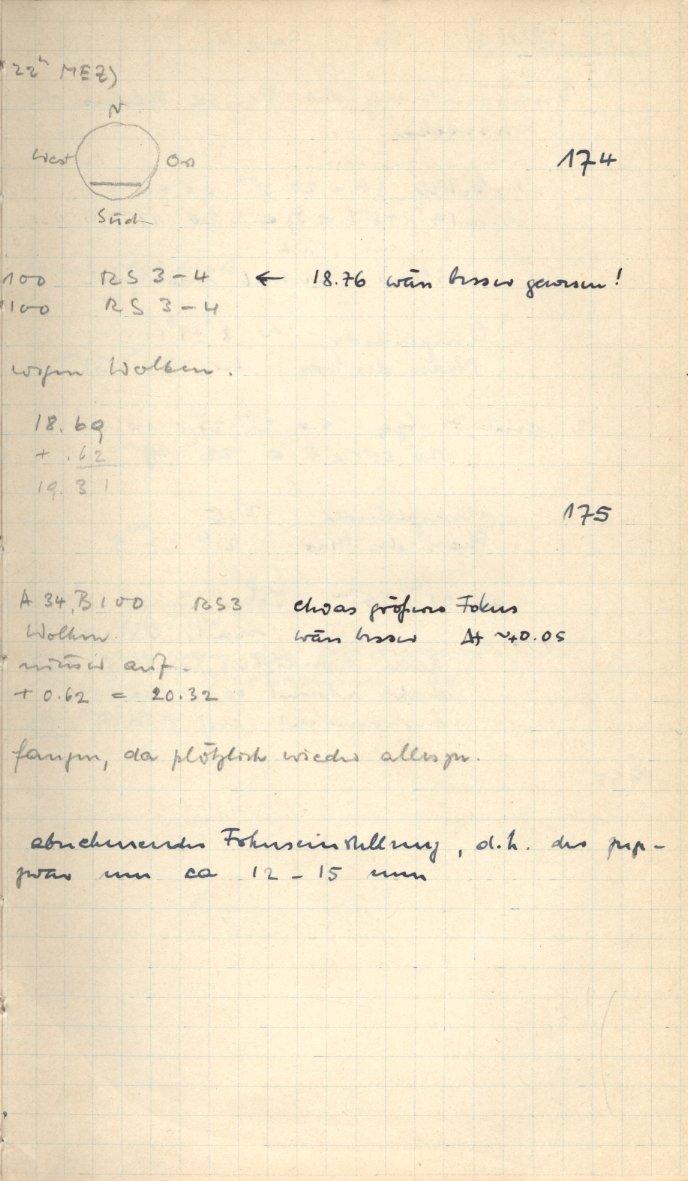 22ʰ MEZ)
N
West Ost
174
Süd
100 RS 3-4 ← 18.76 wäre besser gewesen!
100 RS 3-4
wegen Wolken.
18.69
+ .62
19.31
175
A 34, B 100 RS3 etwas größerer Fokus
Wolken. wäre besser Δf ~+0.05
auf.
+ 0.62 = 20.32
fangen, da plötzlich wieder alles zu.
abnehmender Fokuseinstellung, d.h. der
zwar um ca 12 - 15 mm